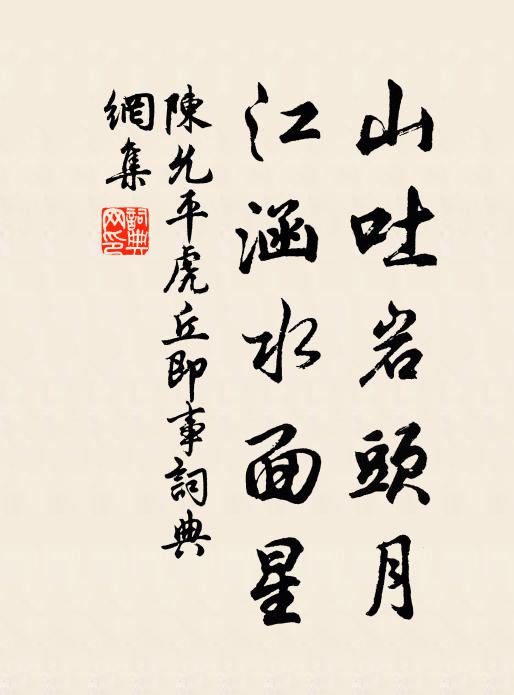 山吐岩頭月
江涵水面星
陳允平虎丘即事詞典
網集
詞典
网印